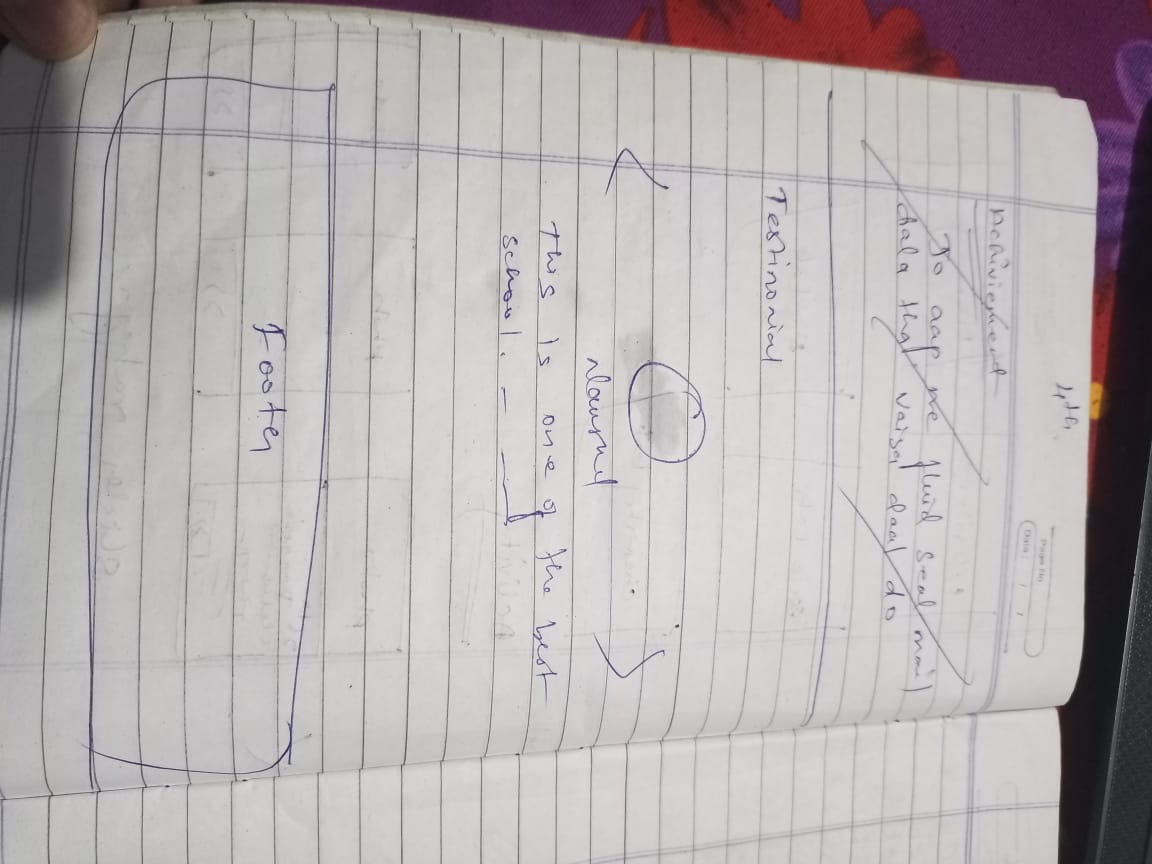 4th
Page No.
Date: / /
Achiviement
Jo aap ne fluid seal mail
chala tha vaisa daal do
Testinonial
< >
This is one of the best
school. – —
Footer